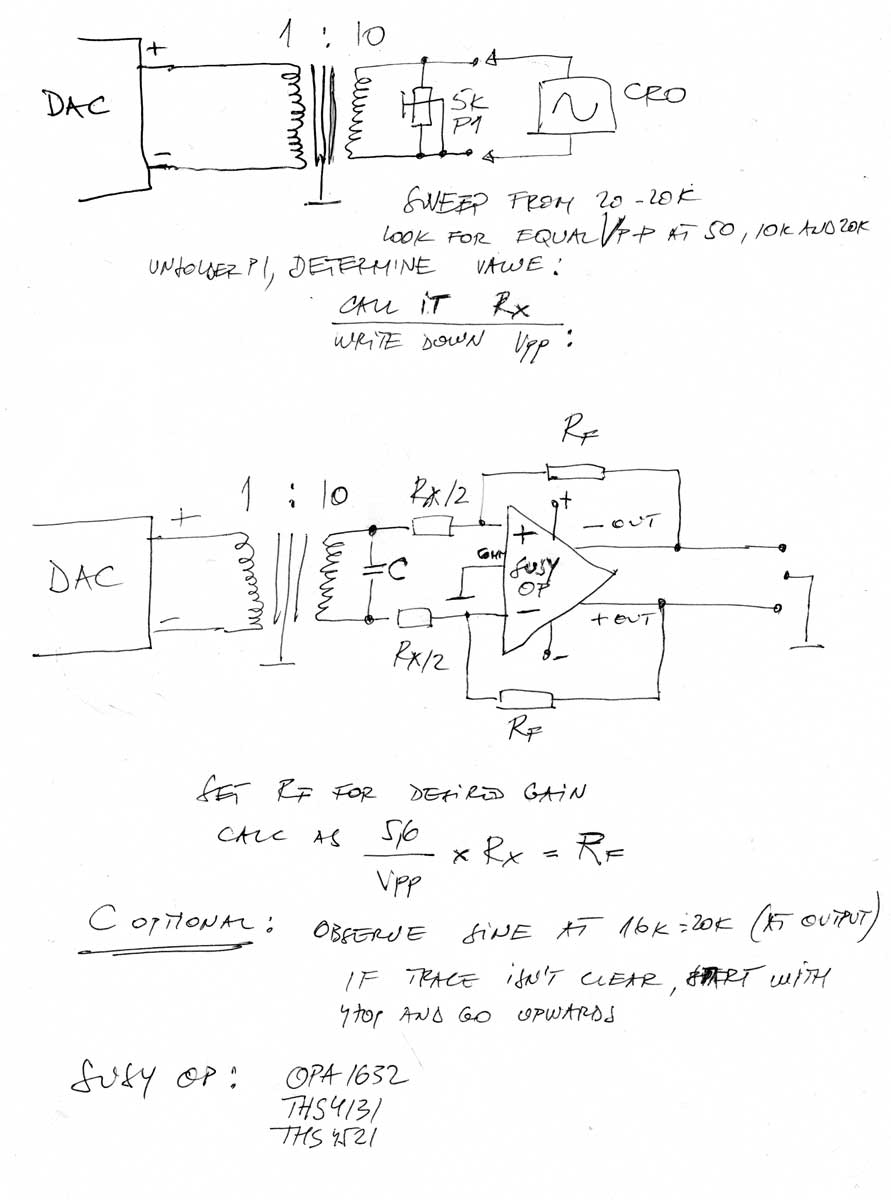 1 : 10
+
DAC
5K
P1
CRO
-
SWEEP FROM 20-20K
LOOK FOR EQUAL VPP AT 50, 10K AND 20K
UNSOLDER P1, DETERMINE VALUE:
CALL IT RX
WRITE DOWN VPP:
RF
1 : 10
RX/2
+
+
- OUT
+
DAC
C
COM
SUSY
OP
-
-
+ OUT
RX/2
-
RF
SET RF FOR DESIRED GAIN
CALC AS 5,6
VPP
x RX = RF
C OPTIONAL: OBSERVE SINE AT 16K÷20K (AT OUTPUT)
IF TRACE ISN'T CLEAR, START WITH
AND GO UPWARDS
SUSY OP: OPA1632
THS4131
THS4521